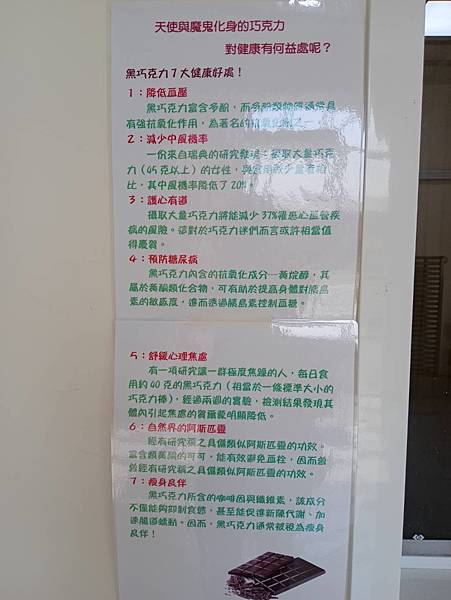 天使與魔鬼化身的巧克力
對健康有何益處呢？
黑巧克力7大健康好處！
1：降低血壓
黑巧克力富含多酚，而多酚類物質通常具
有強抗氧化作用，為著名的抗氧化劑之一。
2：減少中風機率
一份來自瑞典的研究發現：攝取大量巧克
力（45克以上）的女性，與食用較少量者相
比，其中風機率降低了20%。
3：護心有道
攝取大量巧克力將能減少37%罹患心血管疾
病的風險。這對於巧克力迷們而言或許相當值
得慶賀。
4：預防糖尿病
黑巧克力內含的抗氧化成分─黃烷醇，其
屬於黃酮類化合物，可有助於提高身體對胰島
素的敏感度，進而透過胰島素控制血糖。
5：舒緩心理焦慮
有一項研究讓一群極度焦躁的人，每日食
用約40克的黑巧克力（相當於一條標準大小的
巧克力棒），經過兩週的實驗，檢測結果發現其
體內引起焦慮的賀爾蒙明顯降低。
6：自然界的阿斯匹靈
經有研究稱之具備類似阿斯匹靈的功效。
富含類黃酮的可可，能有效避免血栓，因而曾
曾經有研究稱之具備類似阿斯匹靈的功效。
7：瘦身良伴
黑巧克力所含的咖啡因與纖維素，該成分
不僅能夠抑制食慾，甚至能促進新陳代謝、加
速腸道蠕動。因而，黑巧克力通常被視為瘦身
良伴！